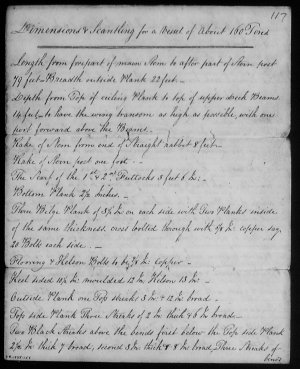 117
Dimensions & Scantling for a Vessel of About 160 Tons
Length from forepart of main Stem to after part of Stern post
79 feet - Breadth outside Plank 22 feet -
Depth from Top of ceiling Plank to top of upper deck Beams
14 feet - to have the wrong transom as high as possible, with one
port forward above the Beams.
Rake of Stem from end of Straight rabbet 8 feet -
Rake of Stern post one foot -
The Scarf of the 1st & 2nd Futtocks 5 feet 6 in;
Bottom Plank 2½ Inches. -
Three Bilge Plank of 3½ in on each side with Two Planks inside
of the same thickness cross bolted through with copper say
20 Bolts each side. -
Flooring & Kelson Bolts to be in copper -
Keel sided in moulded 12 in Kelson 13 in -
Outside Plank one Top streaks 3 in & 12 in broad -
Top side Plank Three Streaks of 2 in thick & 6 in broad
Two Black Streaks above the bends first below the Top side Plank
2½ in thick 7 broad, second 3 in thick & 8 in broad, Three Streaks of
bends